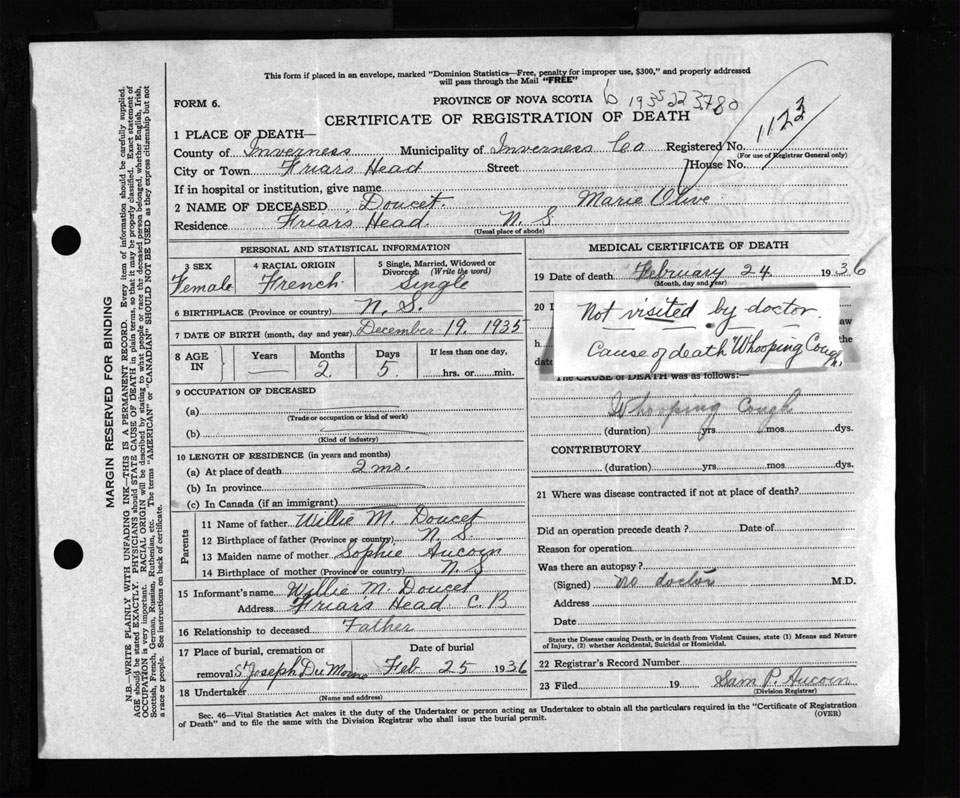 This form if placed in an envelope, marked "Dominion Statistics—Free, penalty for improper use, $300," and properly addressed
will pass through the Mail "FREE"
FORM 6.
PROVINCE OF NOVA SCOTIA
b 1935223780
CERTIFICATE OF REGISTRATION OF DEATH
1122
1 PLACE OF DEATH—
County of Inverness Municipality of Inverness Co Registered No.
(For use of Registrar General only)
City or Town Friar's Head Street House No.
If in hospital or institution, give name
2 NAME OF DECEASED Doucet. Marie Olive
Residence Friar's Head. N. S
(Usual place of abode)
PERSONAL AND STATISTICAL INFORMATION
3 SEX 4 RACIAL ORIGIN 5 Single, Married, Widowed or
Divorced (Write the word)
Female French Single
6 BIRTHPLACE (Province or country) N. S.
7 DATE OF BIRTH (month, day and year) December 19. 1935
8 AGE IN Years Months Days If less than one day,
— 2. 5. hrs. or min.
9 OCCUPATION OF DECEASED
(a)
(Trade or occupation or kind of work)
(b)
(Kind of industry)
10 LENGTH OF RESIDENCE (in years and months)
(a) At place of death 2 mo.
(b) In province
(c) In Canada (if an immigrant)
Parents
11 Name of father Willie M. Doucet
12 Birthplace of father (Province or country) N. S.
13 Maiden name of mother Sophie Aucoin
14 Birthplace of mother (Province or country) N. S
15 Informant's name Willie M. Doucet
Address Friar's Head C. B
16 Relationship to deceased Father
17 Place of burial, cremation or Date of burial
removal St Joseph Du Moine Feb 25 1936
18 Undertaker
(Name and address)
MEDICAL CERTIFICATE OF DEATH
19 Date of death February 24 1936
(Month, day and year)
20 I
Not visited by doctor.
aw
h
the
Cause of death Whooping Cough.
date
The CAUSE OF DEATH was as follows:—
Whooping Cough
(duration) yrs mos dys.
CONTRIBUTORY
(duration) yrs mos dys.
21 Where was disease contracted if not at place of death?
Did an operation precede death ? Date of
Reason for operation
Was there an autopsy?
(Signed) no doctor M.D.
Address
Date
State the Disease causing Death, or in death from Violent Causes, state (1) Means and Nature
of Injury, (2) whether Accidental, Suicidal or Homicidal.
22 Registrar's Record Number
23 Filed 19 Sam P. Aucoin
(Division Registrar)
Sec. 46—Vital Statistics Act makes it the duty of the Undertaker or person acting as Undertaker to obtain all the particulars required in the "Certificate of Registration
of Death" and to file the same with the Division Registrar who shall issue the burial permit.
(OVER)
MARGIN RESERVED FOR BINDING
N.B.—WRITE PLAINLY WITH UNFADING INK—THIS IS A PERMANENT RECORD. Every item of information should be carefully supplied.
AGE should be stated EXACTLY. PHYSICIANS should STATE CAUSE OF DEATH in plain terms, so that it may be properly classified. Exact statement of
OCCUPATION is very important. RACIAL ORIGIN will be described by stating to what people or race the deceased person belonged, whether English, Irish,
Scottish, French, German, Russian, Ruthenian, etc. The terms "AMERICAN" or "CANADIAN" SHOULD NOT BE USED as they express citizenship but not
a race or people. See instructions on back of certificate.